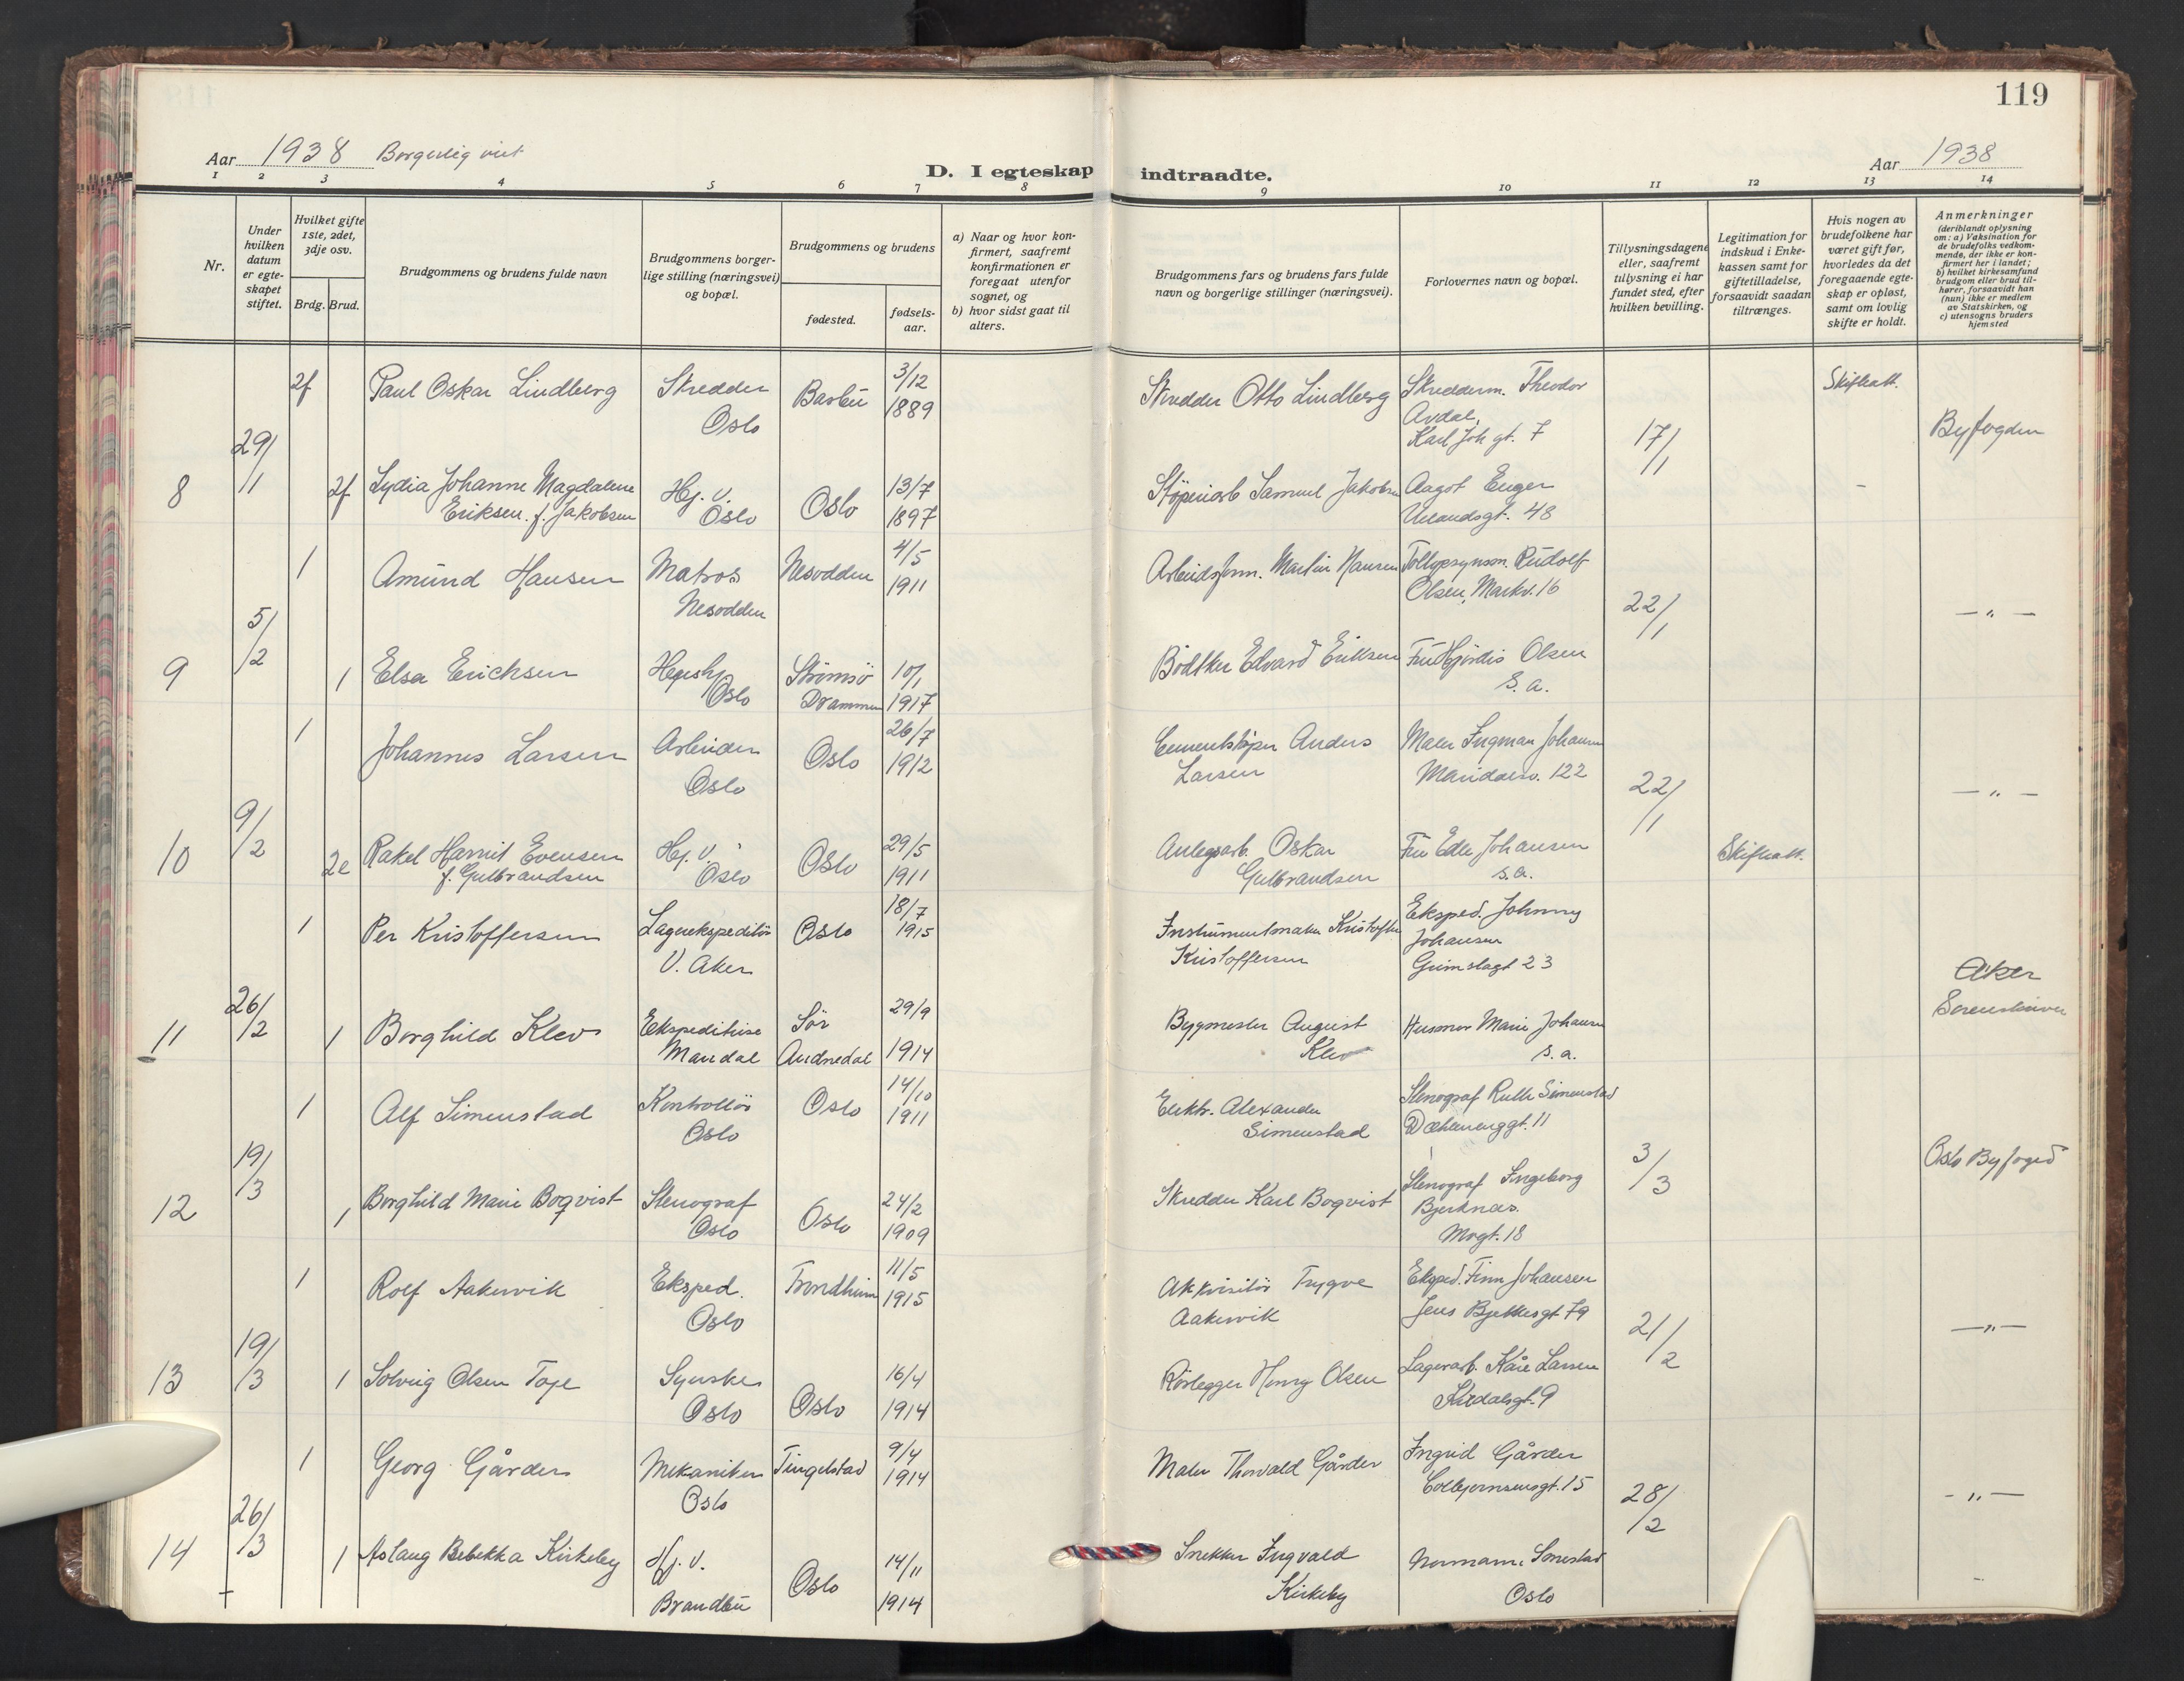 119
Aar 1938 Borgerlig viet
D. I egteskap indtraadte.
Aar 1938
1 2 3 4 5 6 7 8 9 10 11 12 13 14
Nr.
Under hvilken datum er egteskapet stiftet.
Hvilket gifte 1ste, 2det, 3dje osv.
Brdg. Brud.
Brudgommens og brudens fulde navn
Brudgommens borgerlige stilling (næringsvei) og bopæl.
Brudgommens og brudens
fødested.
fødselsaar.
a) Naar og hvor konfirmert, saafremt konfirmationen er foregaat utenfor sognet, og
b) hvor sidst gaat til alters.
Brudgommens fars og brudens fars fulde navn og borgerlige stillinger (næringsvei).
Forlovernes navn og bopæl.
Tillysningsdagene eller, saafremt tillysning ei har fundet sted, efter hvilken bevilling.
Legitimation for indskud i Enkekassen samt for giftetilladelse, forsaavidt saadan tiltrænges.
Hvis nogen av brudefolkene har været gift før, hvorledes da det foregaaende egteskap er opløst, samt om lovlig skifte er holdt.
Anmerkninger
(deriblandt oplysning om: a) Vaksination for de brudefolks vedkommende, der ikke er konfirmert her i landet;
b) hvilket kirkesamfund brudgom eller brud tilhører, forsaavidt han (hun) ikke er medlem av Statskirken, og
c) utensogns bruders hjemsted
2f Paul Oskar Lindberg Skredder Oslo Barbu 3/12 1889 Skredder Otto Lindberg Skredderm. Theodor Avdal, Karl Joh gt. 7 Skifteatt.
8 29/1 17/1 Byfogden
2f Lydia Johanne Magdalene Eriksen f. Jakobsen Hj. v. Oslo Oslo 13/7 1897 Støperiarb Samuel Jakobsen Aagot Enger Uelandsgt. 48
1 Amund Hansen Matros Nesodden Nesodden 4/5 1911 Arbeidsform. Martin Hansen Tollopsynsm. Rudolf Olsen, Markv. 16
9 5/2 22/1 — " —
1 Elsa Erichsen Oslo Strømsø Drammen 10/1 1917 Bødtker Edvard Eriksen Fru Hjørdis Olsen s.a.
1 Johannes Larsen Arbeider Oslo Oslo 26/7 1912 Cementstøper Anders Larsen Maler Ingman Johansen Maridalsv. 122
10 9/2 22/1 — " —
2e Rakel Harriet Evensen f. Gulbrandsen Hj. v. Oslo Oslo 29/5 1911 Anlegsarb. Oskar Gulbrandsen Fru Edle Johansen s.a. Skifteatt.
1 Per Kristoffersen Lagerekspeditør V. Aker Oslo 18/7 1915 Instrumentmaker Kristoffer Kristoffersen Eksped. Johnny Johansen Grimstagt 23
11 26/2 Aker Sorenskriver
1 Borghild Klev Ekspeditrise Mandal Sør Audnedal 29/9 1914 Bygmester August Klev Husmor Marie Johansen s.a.
1 Alf Simenstad Kontrollør Oslo Oslo 14/10 1911 Elektr. Alexander Simenstad Stenograf Ruth Simenstad Dæhlenenggt. 11
12 19/3 3/3 Oslo Byfoged
1 Borghild Marie Boqvist Stenograf Oslo Oslo 24/2 1909 Skredder Karl Boqvist Stenograf Ingeborg Bjerknæs. 18
1 Rolf Aakervik Eksped. Oslo Trondheim 11/5 1915 Akkvisitør Trygve Aakervik Eksped. Finn Johansen Jens Bjelkesgt 79
13 19/3 21/2 — " —
1 Solveig Olsen Syerske Oslo Oslo 16/4 1914 Rørlegger Henry Olsen Lagerarb. Kåre Larsen
1 Georg Gården Mekaniker Oslo Tingelstad 9/4 1914 Maler Thorvald Gården Ingrid Gården Colbjørnsensgt. 15
14 26/3 28/2 — " —
1 Aslaug Bebekka Kirkeby Hj. v. Brandbu Oslo 14/11 1914 Snekker Ingvald Kirkeby Oslo